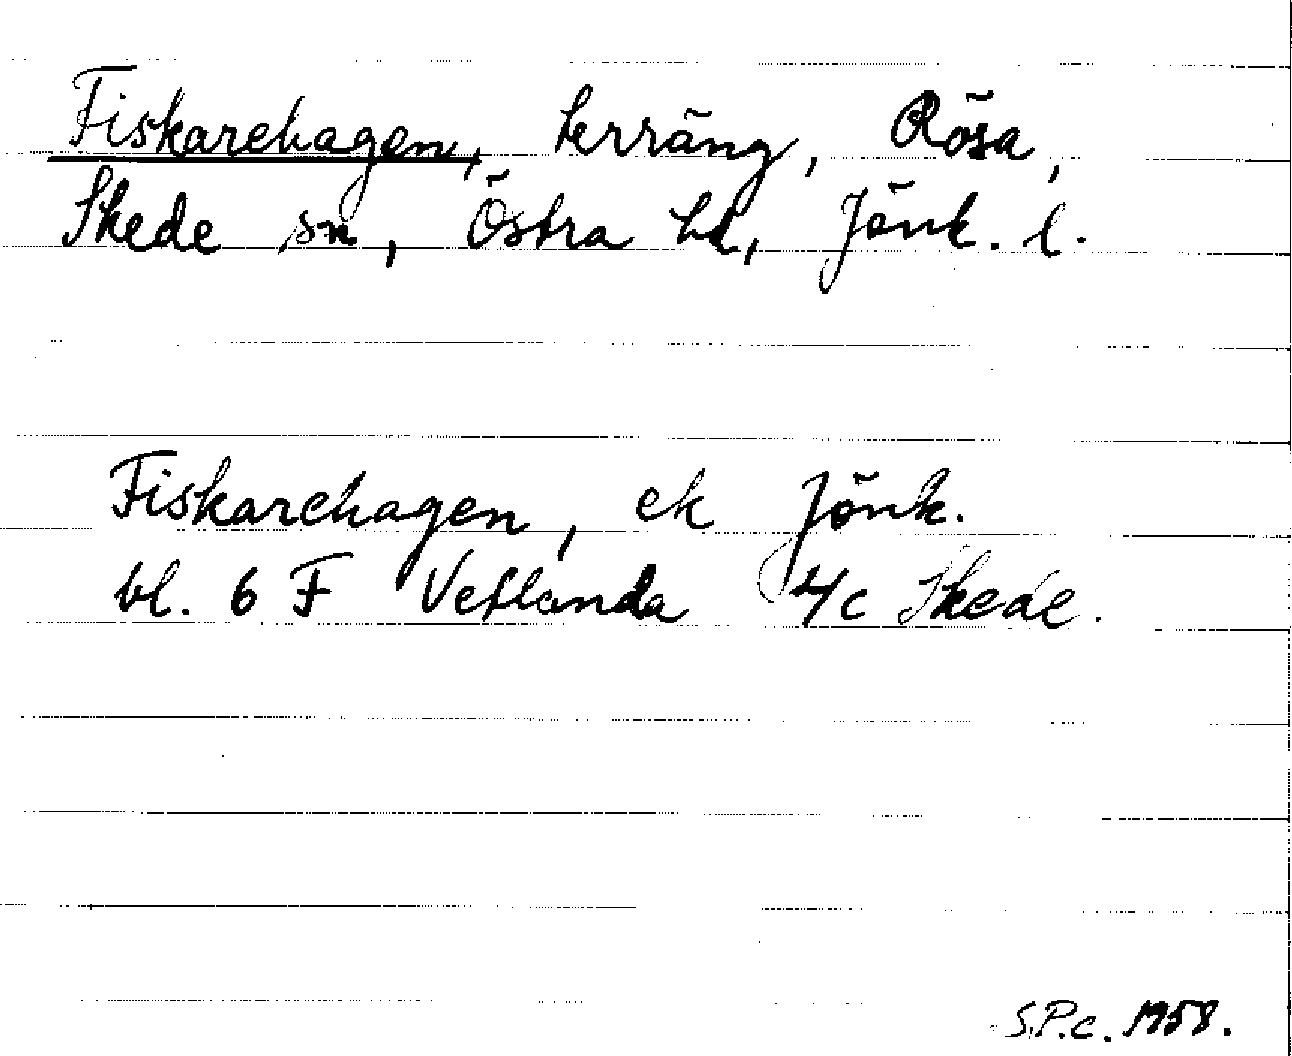 Fiskarehagen, terräng, Rösa,
Skede sn, Östra hd, Jönk. l.
Fiskarehagen, ek Jönk.
bl. 6 F Vetlanda 4c Skede.
S.P.c. 1958.